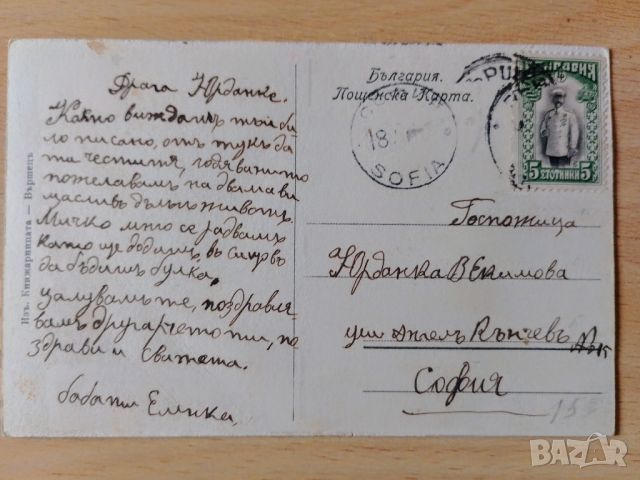 Драга Юрданке.
Както виждамъ тъй би
ло писано, отъ тукъ да
та честитя, годяванито
пожелавамъ на двама ви
щасливъ дълъгъ животъ.
Мичко мно се радвамъ
като ще додишъ въ
да бъдишъ булка,
цалувамъ те, поздравя
вамъ другарчето ти, по
здрави и Сватета.
баба ти Еленка.
Изъ. Книжарницата — Вършецъ
България.
Пощенска Карта.
18.
SOFIA
БЪЛГАРИЯ
5 СТОТИНКИ 5
Госпожица
Юрданка В Екимова
ул Ангелъ Кънчевъ
София
BAZAR